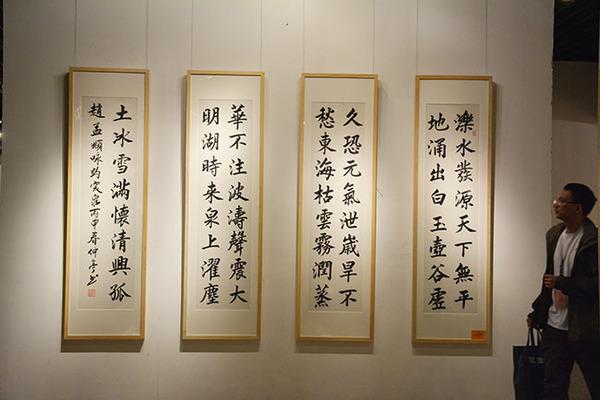 濼水發源天下無平
地涌出白玉壺谷虛
久恐元氣泄歲旱不
愁東海枯雲霧潤蒸
華不注波濤聲震大
明湖時来泉上濯塵
土冰雪滿懷清興孤
趙孟頫咏趵突泉丙申春仲亭书